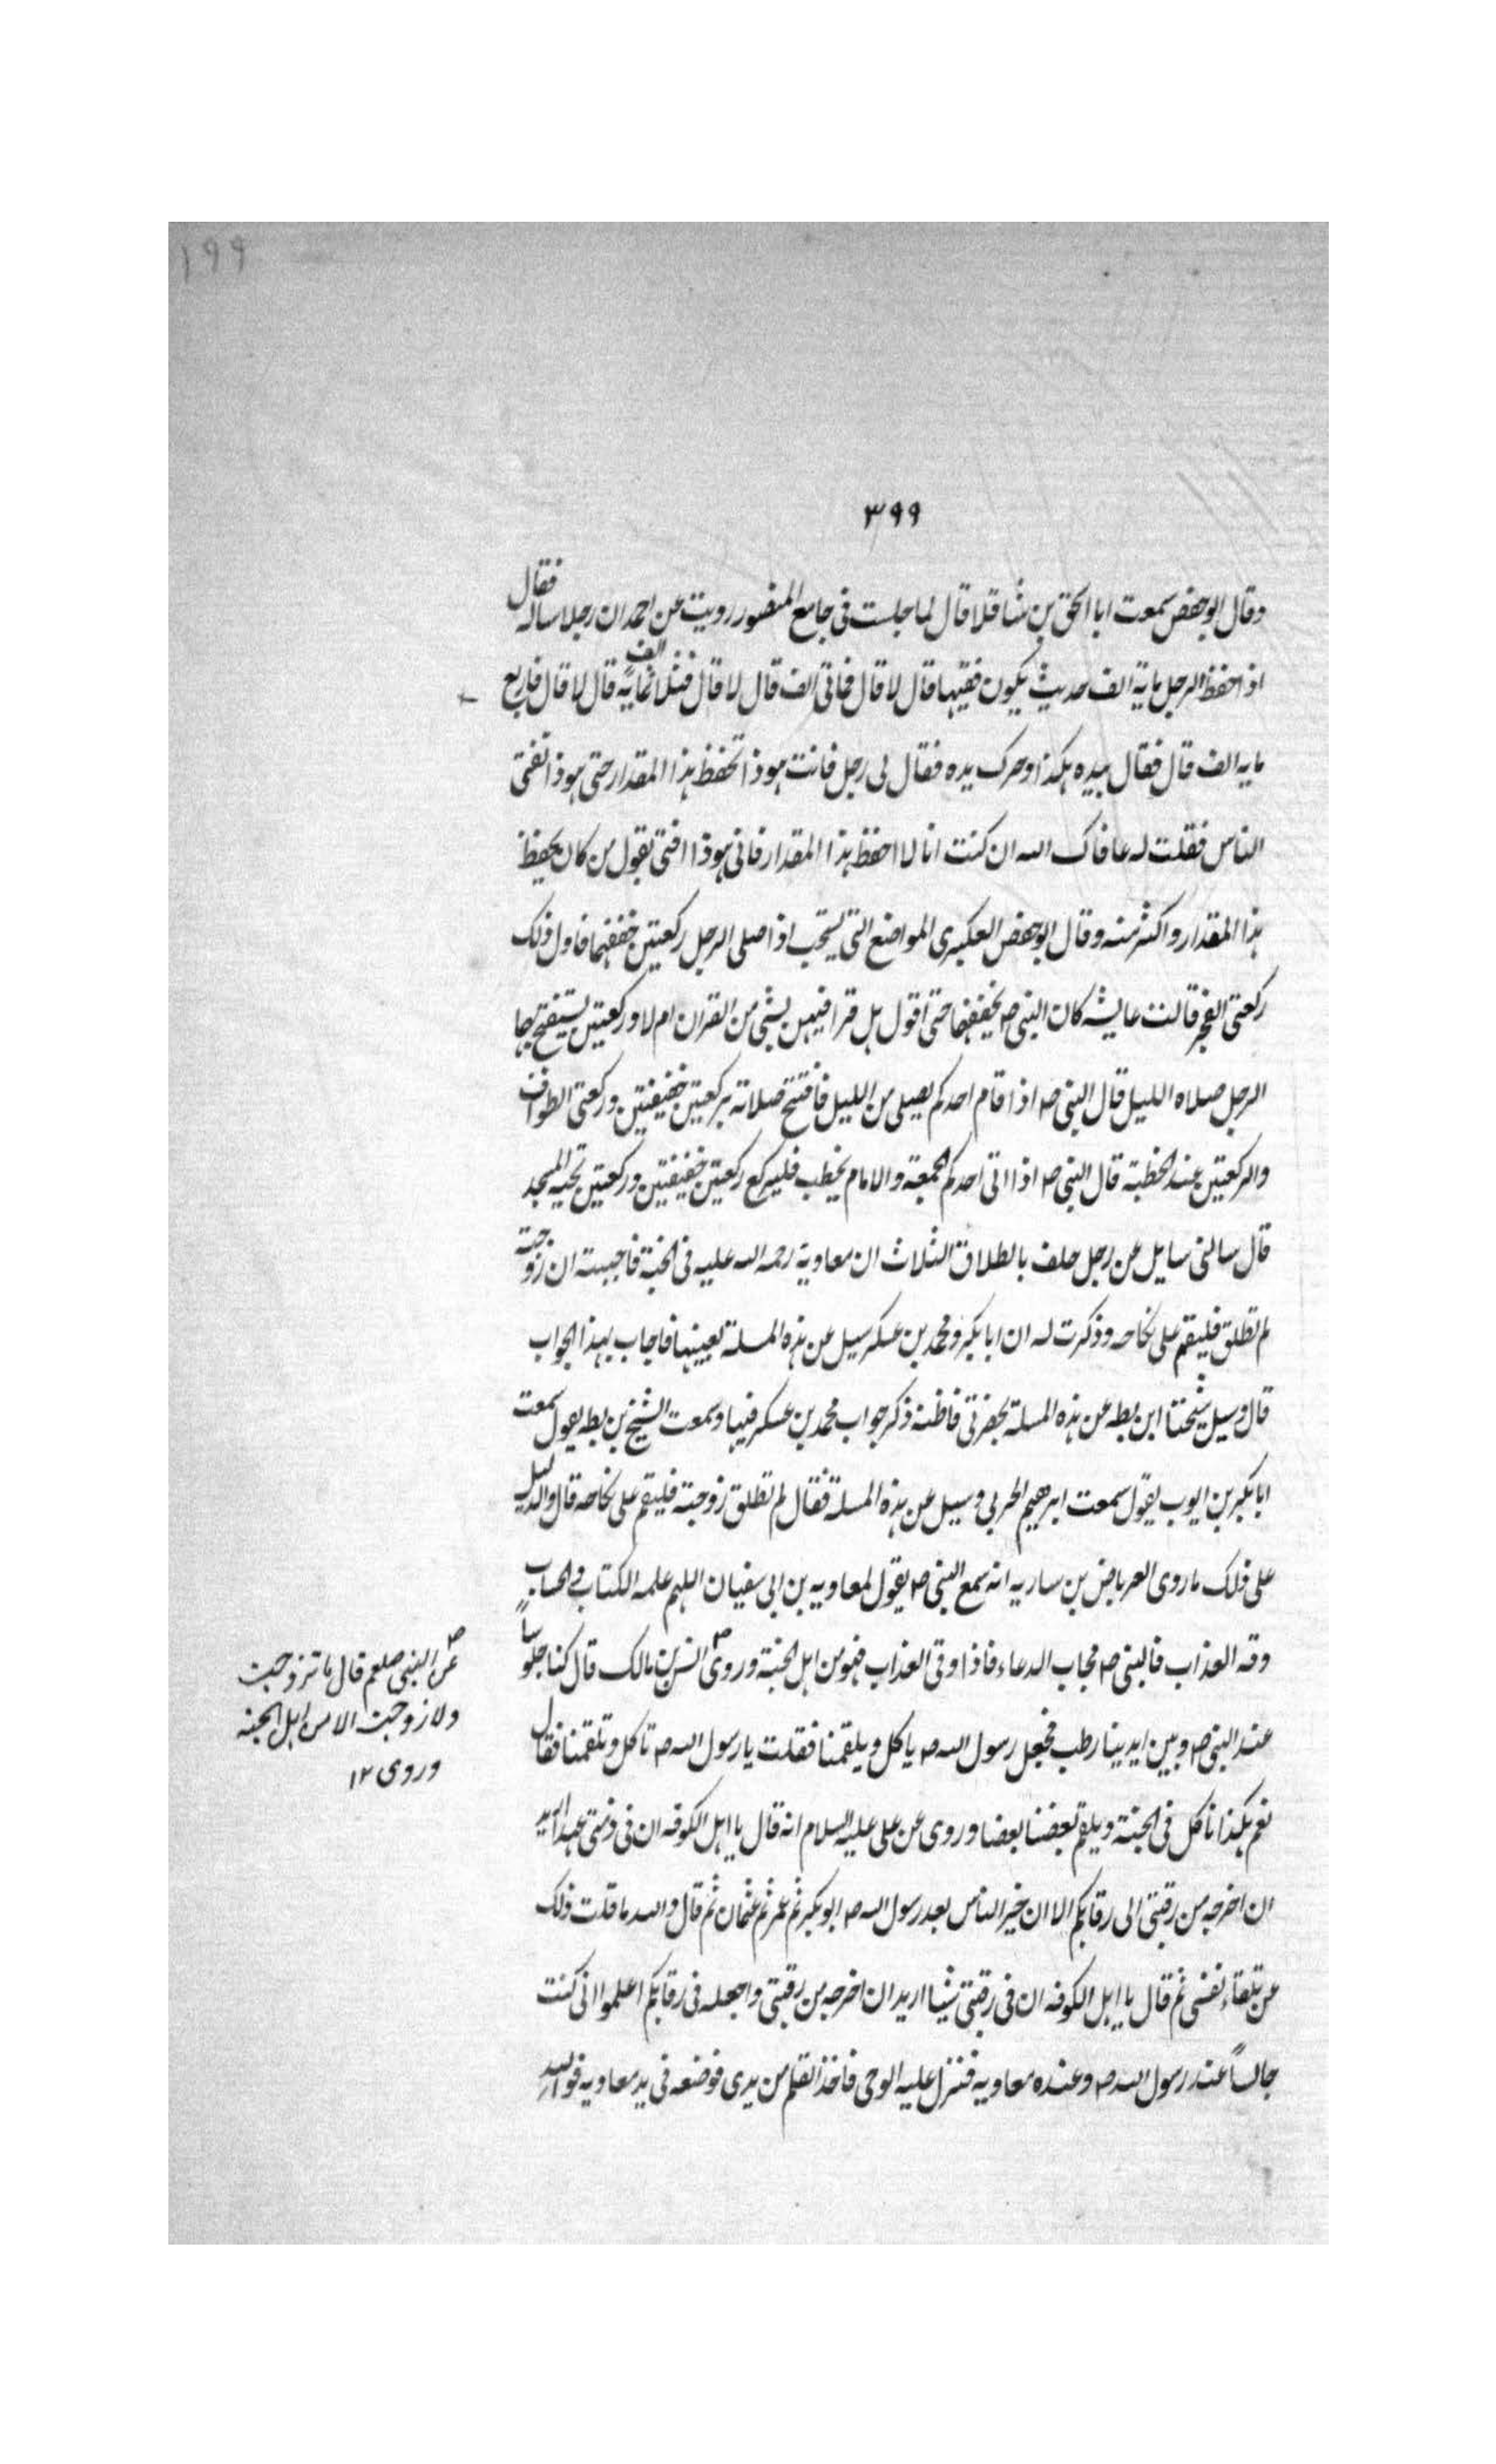 ١٩٩
٣٩٩
وقال ابو حفص سمعت ابا اسحق بن شاقلا قال لما جلست فى جامع المنصور رويت عن احمد ان رجلا ساله فقال
اذا حفظ الرجل ماية الف حديث يكون فقيها قال لا قال فماتى الف قال لا قال فثلثماية الف قال لا قال فاربع
مايه الف قال فقال بيده هكذا وحرك يده فقال لى رجل فانت هو ذا تحفظ هذا المقدار حتى هو ذا تفتى
الناس فقلت له عافاك الله ان كنت انا لا احفظ هذا المقدار فانى هو ذا افتى بقول من كان يحفظ
هذا المقدار واكثر منه وقال ابو حفص العكبرى المواضع التى يستحب اذا صلى الرجل ركعتين خففهما فاول ذلك
ركعتى الفجر قالت عايشه كان النبى ص يخففهما حتى اقول هل قرا فيهن بشى من القران ام لا وركعتين يستفتح بها
الرجل صلاه الليل قال النبى ص اذا قام احدكم يصلى من الليل فافتتح صلاته بركعتين خفيفتين وركعتى الطواف
والركعتين عند الخطبة قال النبى ص اذا اتى احدكم الجمعة والامام يخطب فليركع ركعتين خفيفتين وركعتين تحيه المسجد
قال سالنى سايل عن رجل حلف بالطلاق الثلاث ان معاوية رحمه الله عليه فى الجنة فاجبته ان زوجته
لم تطلق فليقم على نكاحه وذكرت له ان ابا بكر و محمد بن عسكر سيل عن هذه المسلة بعينها فاجاب بهذا الجواب
قال وسيل شيخنا ابن بطه عن هذه المسلة بحضرتى فاظنه ذكر جواب محمد بن عسكر فيها وسمعت الشيخ بن بطه يقول سمعت
ابا بكر بن ايوب يقول سمعت ابرهيم الحربى وسيل عن هذه المسلة فقال لم تطلق زوجته فليقم على نكاحه قال والدليل
على ذلك ما روى العرباض بن ساريه انه سمع النبى ص يقول لمعاويه بن ابى سفيان اللهم علمه الكتاب والحساب
وقه العذاب فالنبى ص مجاب الدعاء فاذا وقى العذاب فهو من اهل الجنة وروى ص انس بن مالك قال كنا جلوسا
عند النبى ص وبين ايدينا رطب فجعل رسول الله ص ياكل ويلقمنا فقلت يا رسول الله ص تاكل وتلقمنا فقال
نعم هكذا ناكل فى الجنة ويلقم بعضنا بعضا وروى عن على عليه السلام انه قال يا اهل الكوفه ان فى ذمتى عهدا اريد
ان اخرجه من رقبتى الى رقابكم الا ان خير الناس بعد رسول الله ص ابو بكر ثم عمر ثم عثمان ثم قال والله ما قلت ذلك
من تلقاء نفسى ثم قال يا اهل الكوفه ان فى رقبتى شيئا اريد ان اخرجه من رقبتى واجعله فى رقابكم اعلموا انى كنت
جالسا عند رسول الله ص وعنده معاويه فنزل عليه الوحى فاخذ القلم من يدى فوضعه فى يد معاويه فوالله
ص
عن النبى صلعم قال ما تزوجت
ولا زوجت الا من اهل الجنه
وروى ١٢